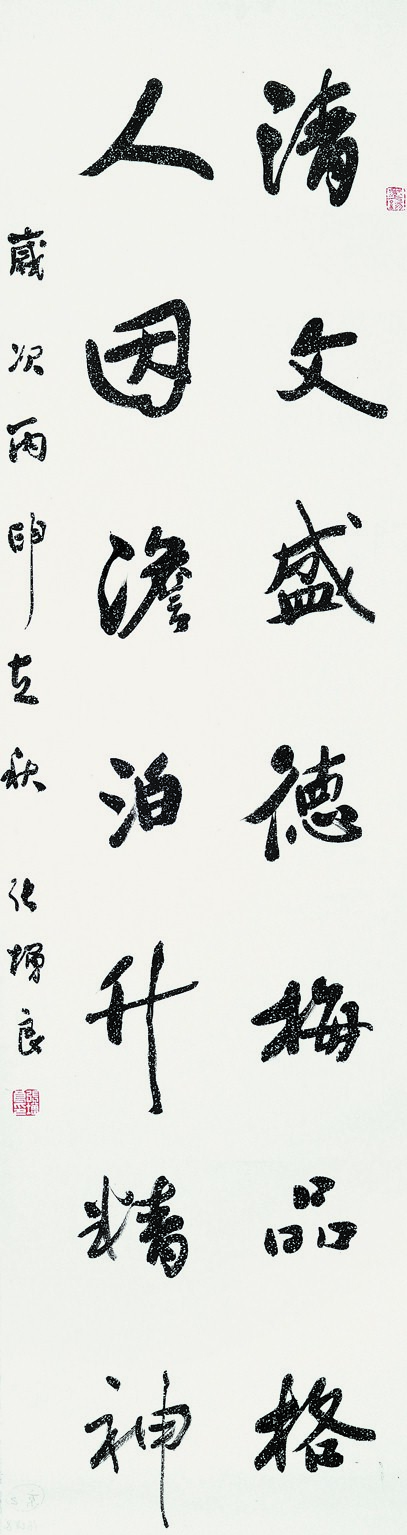 清文盛德梅品格
人因澹泊升精神
歲次丙申立秋 張增良